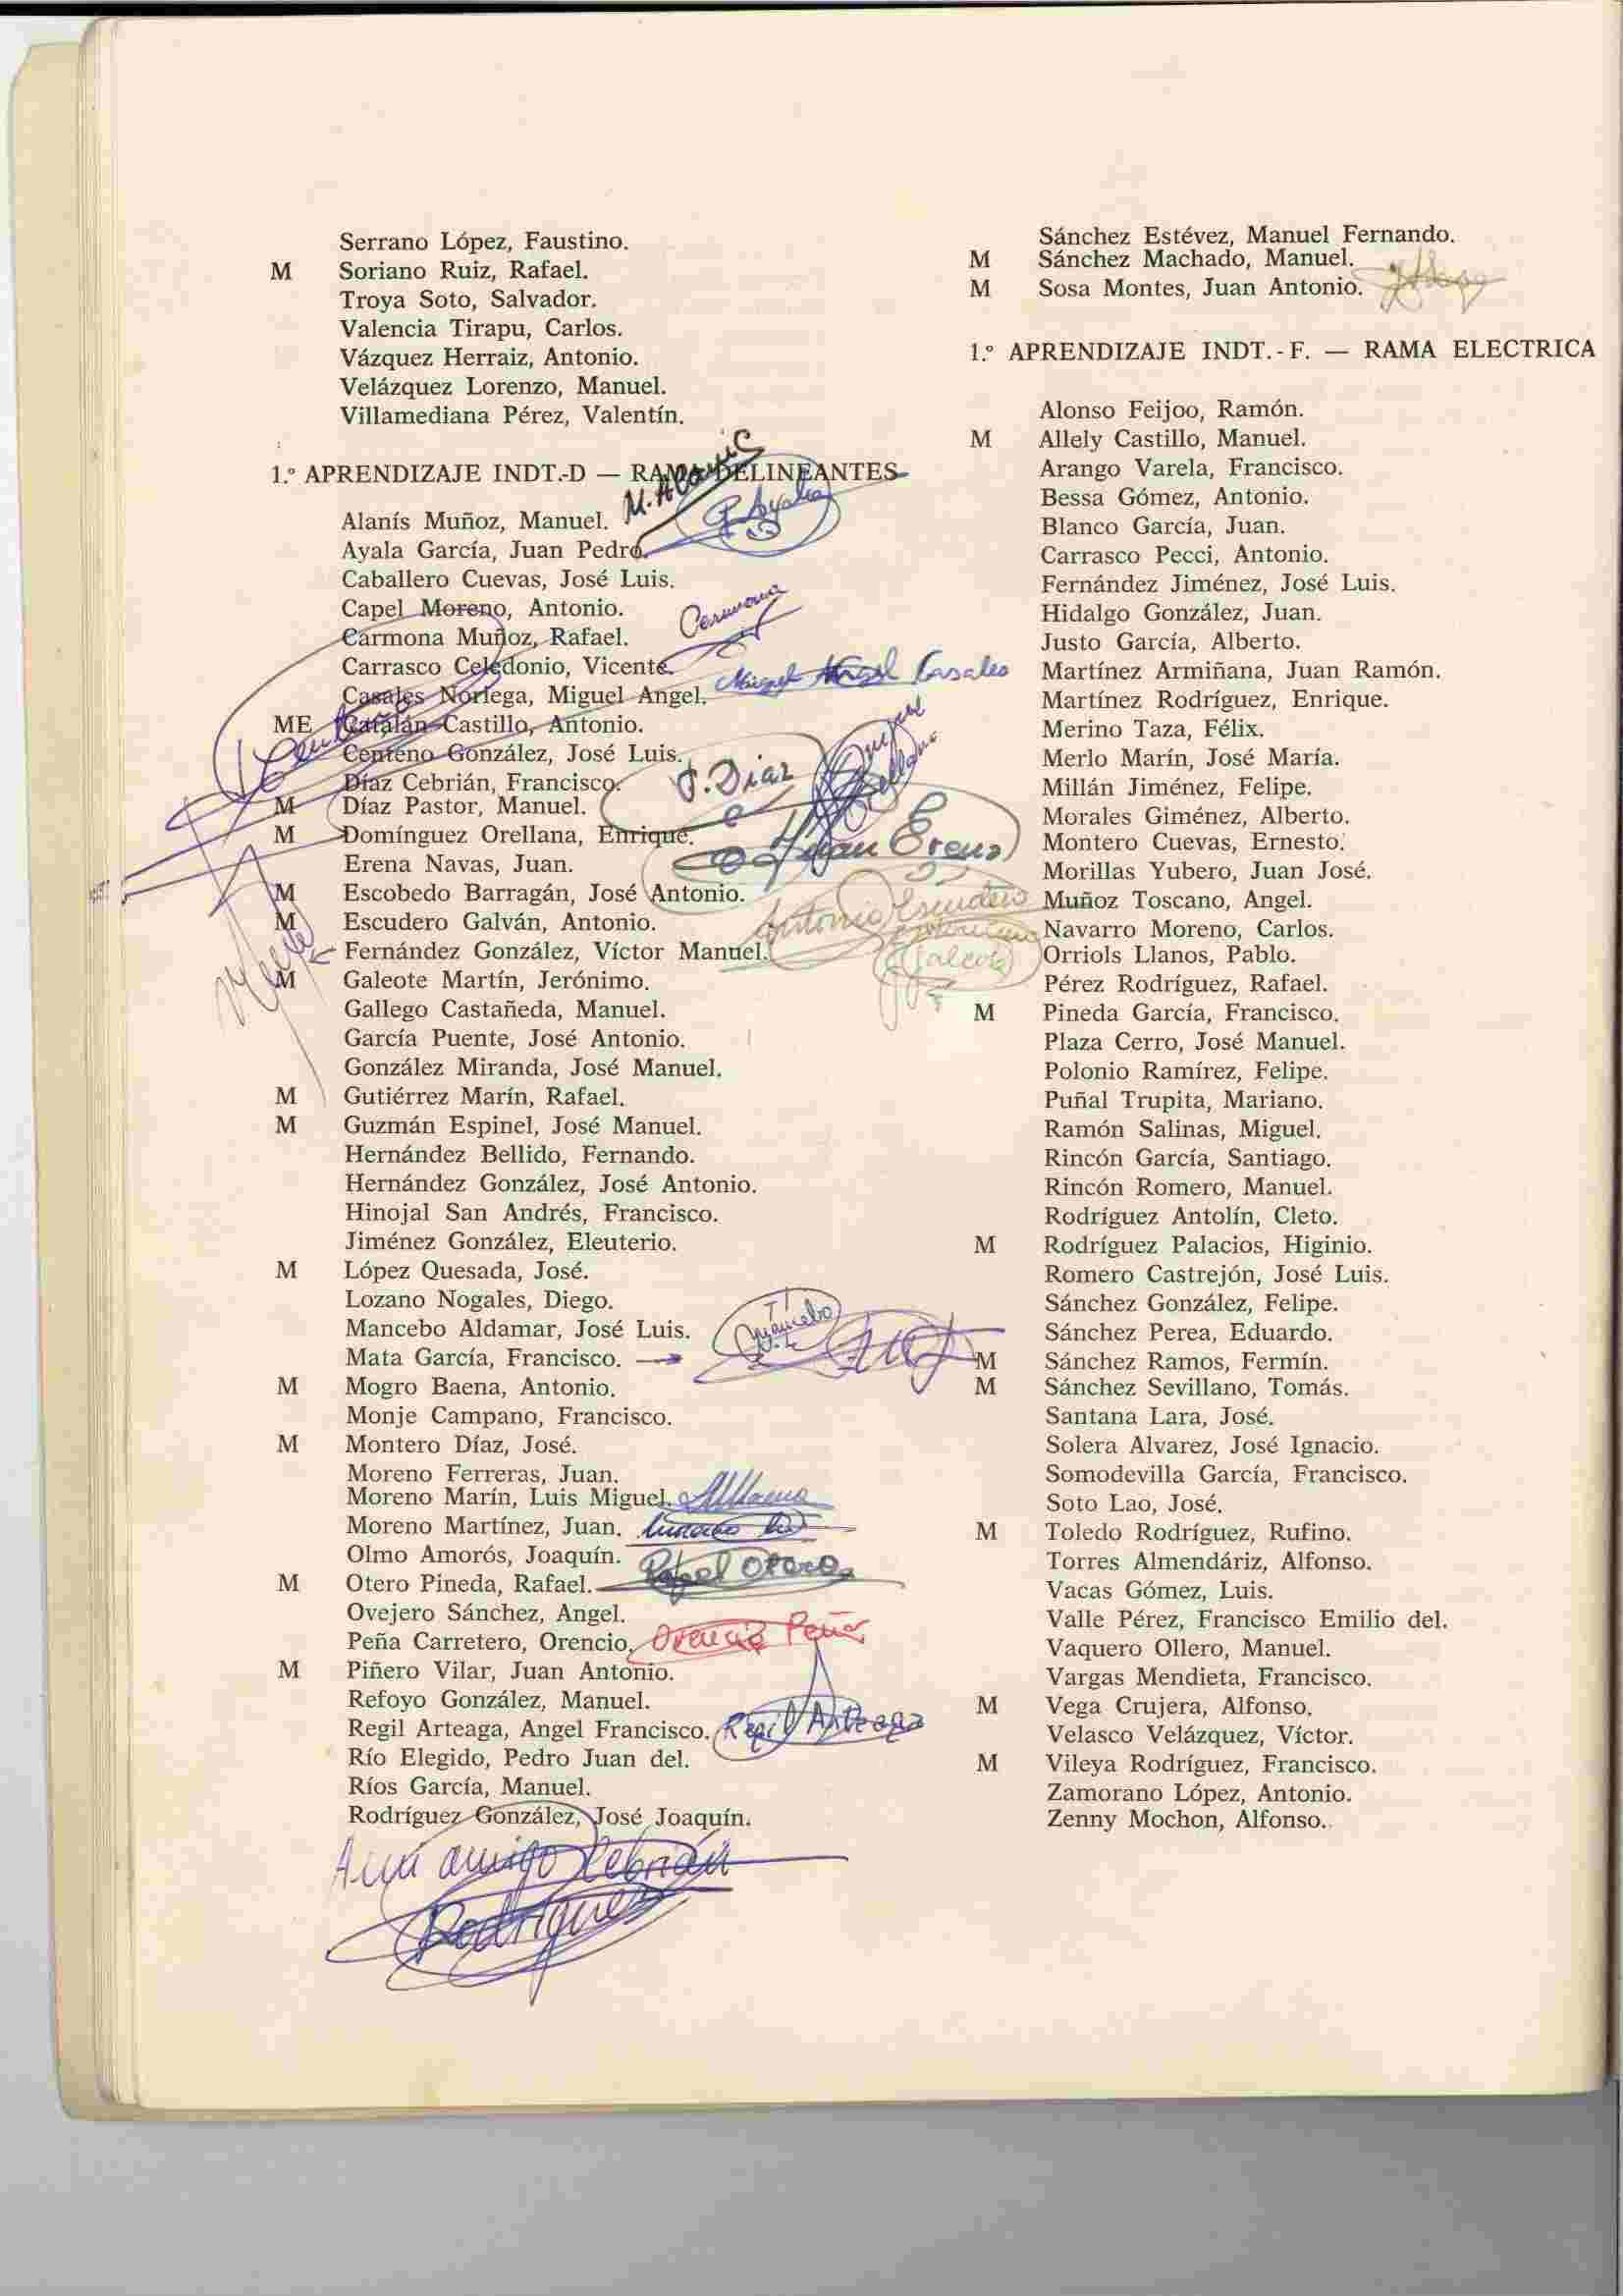 Serrano López, Faustino.
M Soriano Ruiz, Rafael.
Troya Soto, Salvador.
Valencia Tirapu, Carlos.
Vázquez Herraiz, Antonio.
Velázquez Lorenzo, Manuel.
Villamediana Pérez, Valentín.
1.º APRENDIZAJE INDT.-D — RAMA DELINEANTES
M. Alanis
Alanís Muñoz, Manuel.
P. Ayala
Ayala García, Juan Pedro.
Caballero Cuevas, José Luis.
Capel Moreno, Antonio.
Carmona Muñoz, Rafael. Carmona
Carrasco Celedonio, Vicente.
Casales Noriega, Miguel Angel. Miguel Angel Casales
ME Catalán Castillo, Antonio.
Centeno González, José Luis.
Díaz Cebrián, Francisco. J. Diaz
M Díaz Pastor, Manuel.
M Domínguez Orellana, Enrique.
Erena Navas, Juan. Juan Erena
M Escobedo Barragán, José Antonio.
M Escudero Galván, Antonio. Antonio Escudero
Fernández González, Víctor Manuel.
M Galeote Martín, Jerónimo. Galeote
Gallego Castañeda, Manuel.
García Puente, José Antonio.
González Miranda, José Manuel.
M Gutiérrez Marín, Rafael.
M Guzmán Espinel, José Manuel.
Hernández Bellido, Fernando.
Hernández González, José Antonio.
Hinojal San Andrés, Francisco.
Jiménez González, Eleuterio.
M López Quesada, José.
Lozano Nogales, Diego.
Mancebo Aldamar, José Luis. Mancebo
Mata García, Francisco.
M Mogro Baena, Antonio.
Monje Campano, Francisco.
M Montero Díaz, José.
Moreno Ferreras, Juan.
Moreno Marín, Luis Miguel.
Moreno Martínez, Juan.
Olmo Amorós, Joaquín.
M Otero Pineda, Rafael. Rafael Otero
Ovejero Sánchez, Angel.
Peña Carretero, Orencio. Orencio Peña
M Piñero Vilar, Juan Antonio.
Refoyo González, Manuel.
Regil Arteaga, Angel Francisco. Regil Arteaga
Río Elegido, Pedro Juan del.
Ríos García, Manuel.
Rodríguez González, José Joaquín.
A mi amigo Cebrián
Rodríguez
Sánchez Estévez, Manuel Fernando.
M Sánchez Machado, Manuel.
M Sosa Montes, Juan Antonio.
1.º APRENDIZAJE INDT.-F. — RAMA ELECTRICA
Alonso Feijoo, Ramón.
M Allely Castillo, Manuel.
Arango Varela, Francisco.
Bessa Gómez, Antonio.
Blanco García, Juan.
Carrasco Pecci, Antonio.
Fernández Jiménez, José Luis.
Hidalgo González, Juan.
Justo García, Alberto.
Martínez Armiñana, Juan Ramón.
Martínez Rodríguez, Enrique.
Merino Taza, Félix.
Merlo Marín, José María.
Millán Jiménez, Felipe.
Morales Giménez, Alberto.
Montero Cuevas, Ernesto.
Morillas Yubero, Juan José.
Muñoz Toscano, Angel.
Navarro Moreno, Carlos.
Orriols Llanos, Pablo.
Pérez Rodríguez, Rafael.
M Pineda García, Francisco.
Plaza Cerro, José Manuel.
Polonio Ramírez, Felipe.
Puñal Trupita, Mariano.
Ramón Salinas, Miguel.
Rincón García, Santiago.
Rincón Romero, Manuel.
Rodríguez Antolín, Cleto.
M Rodríguez Palacios, Higinio.
Romero Castrejón, José Luis.
Sánchez González, Felipe.
Sánchez Perea, Eduardo.
M Sánchez Ramos, Fermín.
M Sánchez Sevillano, Tomás.
Santana Lara, José.
Solera Alvarez, José Ignacio.
Somodevilla García, Francisco.
Soto Lao, José.
M Toledo Rodríguez, Rufino.
Torres Almendáriz, Alfonso.
Vacas Gómez, Luis.
Valle Pérez, Francisco Emilio del.
Vaquero Ollero, Manuel.
Vargas Mendieta, Francisco.
M Vega Crujera, Alfonso.
Velasco Velázquez, Víctor.
M Vileya Rodríguez, Francisco.
Zamorano López, Antonio.
Zenny Mochon, Alfonso.